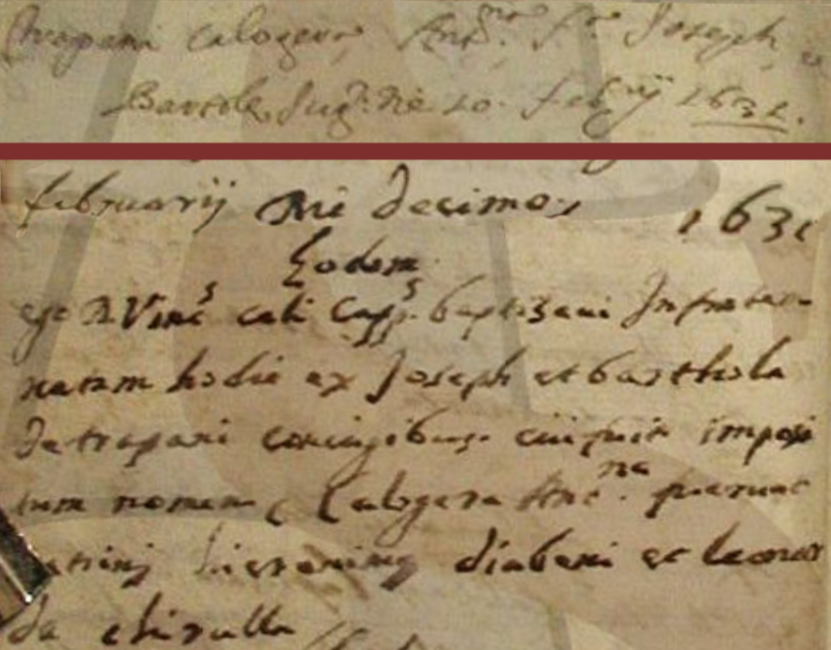 Trapani Calogera Ant.na f.a Joseph e
Bartola Jug. die 10. feb.rij 1631.
februarij Die decimo 1631
Eodem
ego D. Vinc.s cali Capp.s baptizavi Infantem
natam hodie ex Joseph et barthola
de trapani coniugibus cui fuit imposi
tum nomen Calogera Ant.na fuerunt
patrini hieronimus diabeni et leonor
da chirulla